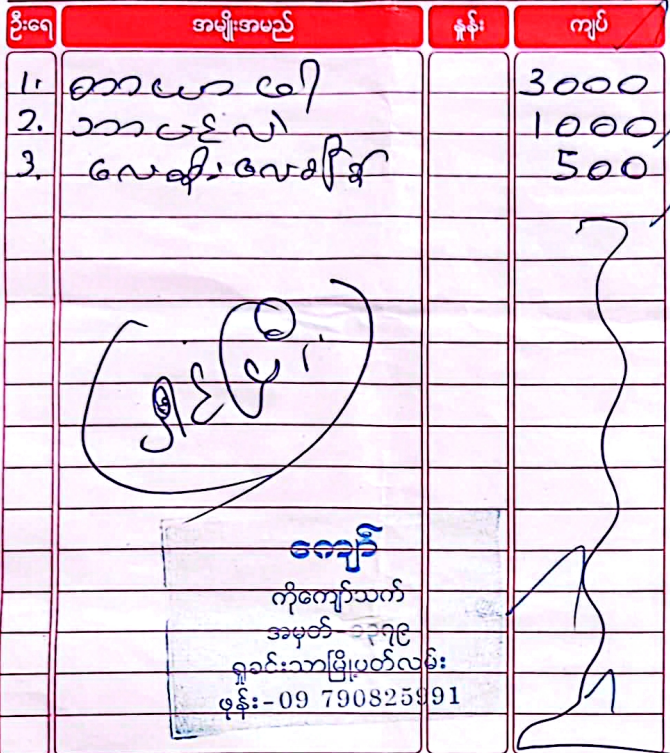 ဦးရေ အမျိုးအမည် နှုန်း ကျပ်
1. တာယာ ဖါ 3000
2. ဘာမင်လဲ 1000
3. လေထိုး 500
ကျော်
ကိုကျော်သက်
အမှတ်-
ရှုခင်းသာမြို့ပတ်လမ်း
ဖုန်း-09 790825991